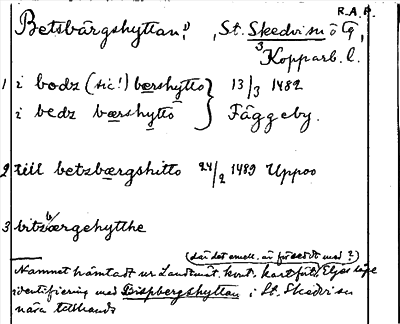 R.A.P.
Betsbärgshyttan, 1) St. Skedvi sn ö G,
3 Kopparb. l.
1 i bodz (sic!) bershytto 13/3 1482
i bedz bærshytto Fäggeby.
2 till betzbærgshitto 24/2 1489 Uppoo
3 bitzbærgehytthe
(där det emell. är försedt med ?)
Namnet hämtadt ur Landtmät. kont. kartfört. Eljes låge
identifiering med Bispbergshyttan i St. Skedvi sn
nära till hands